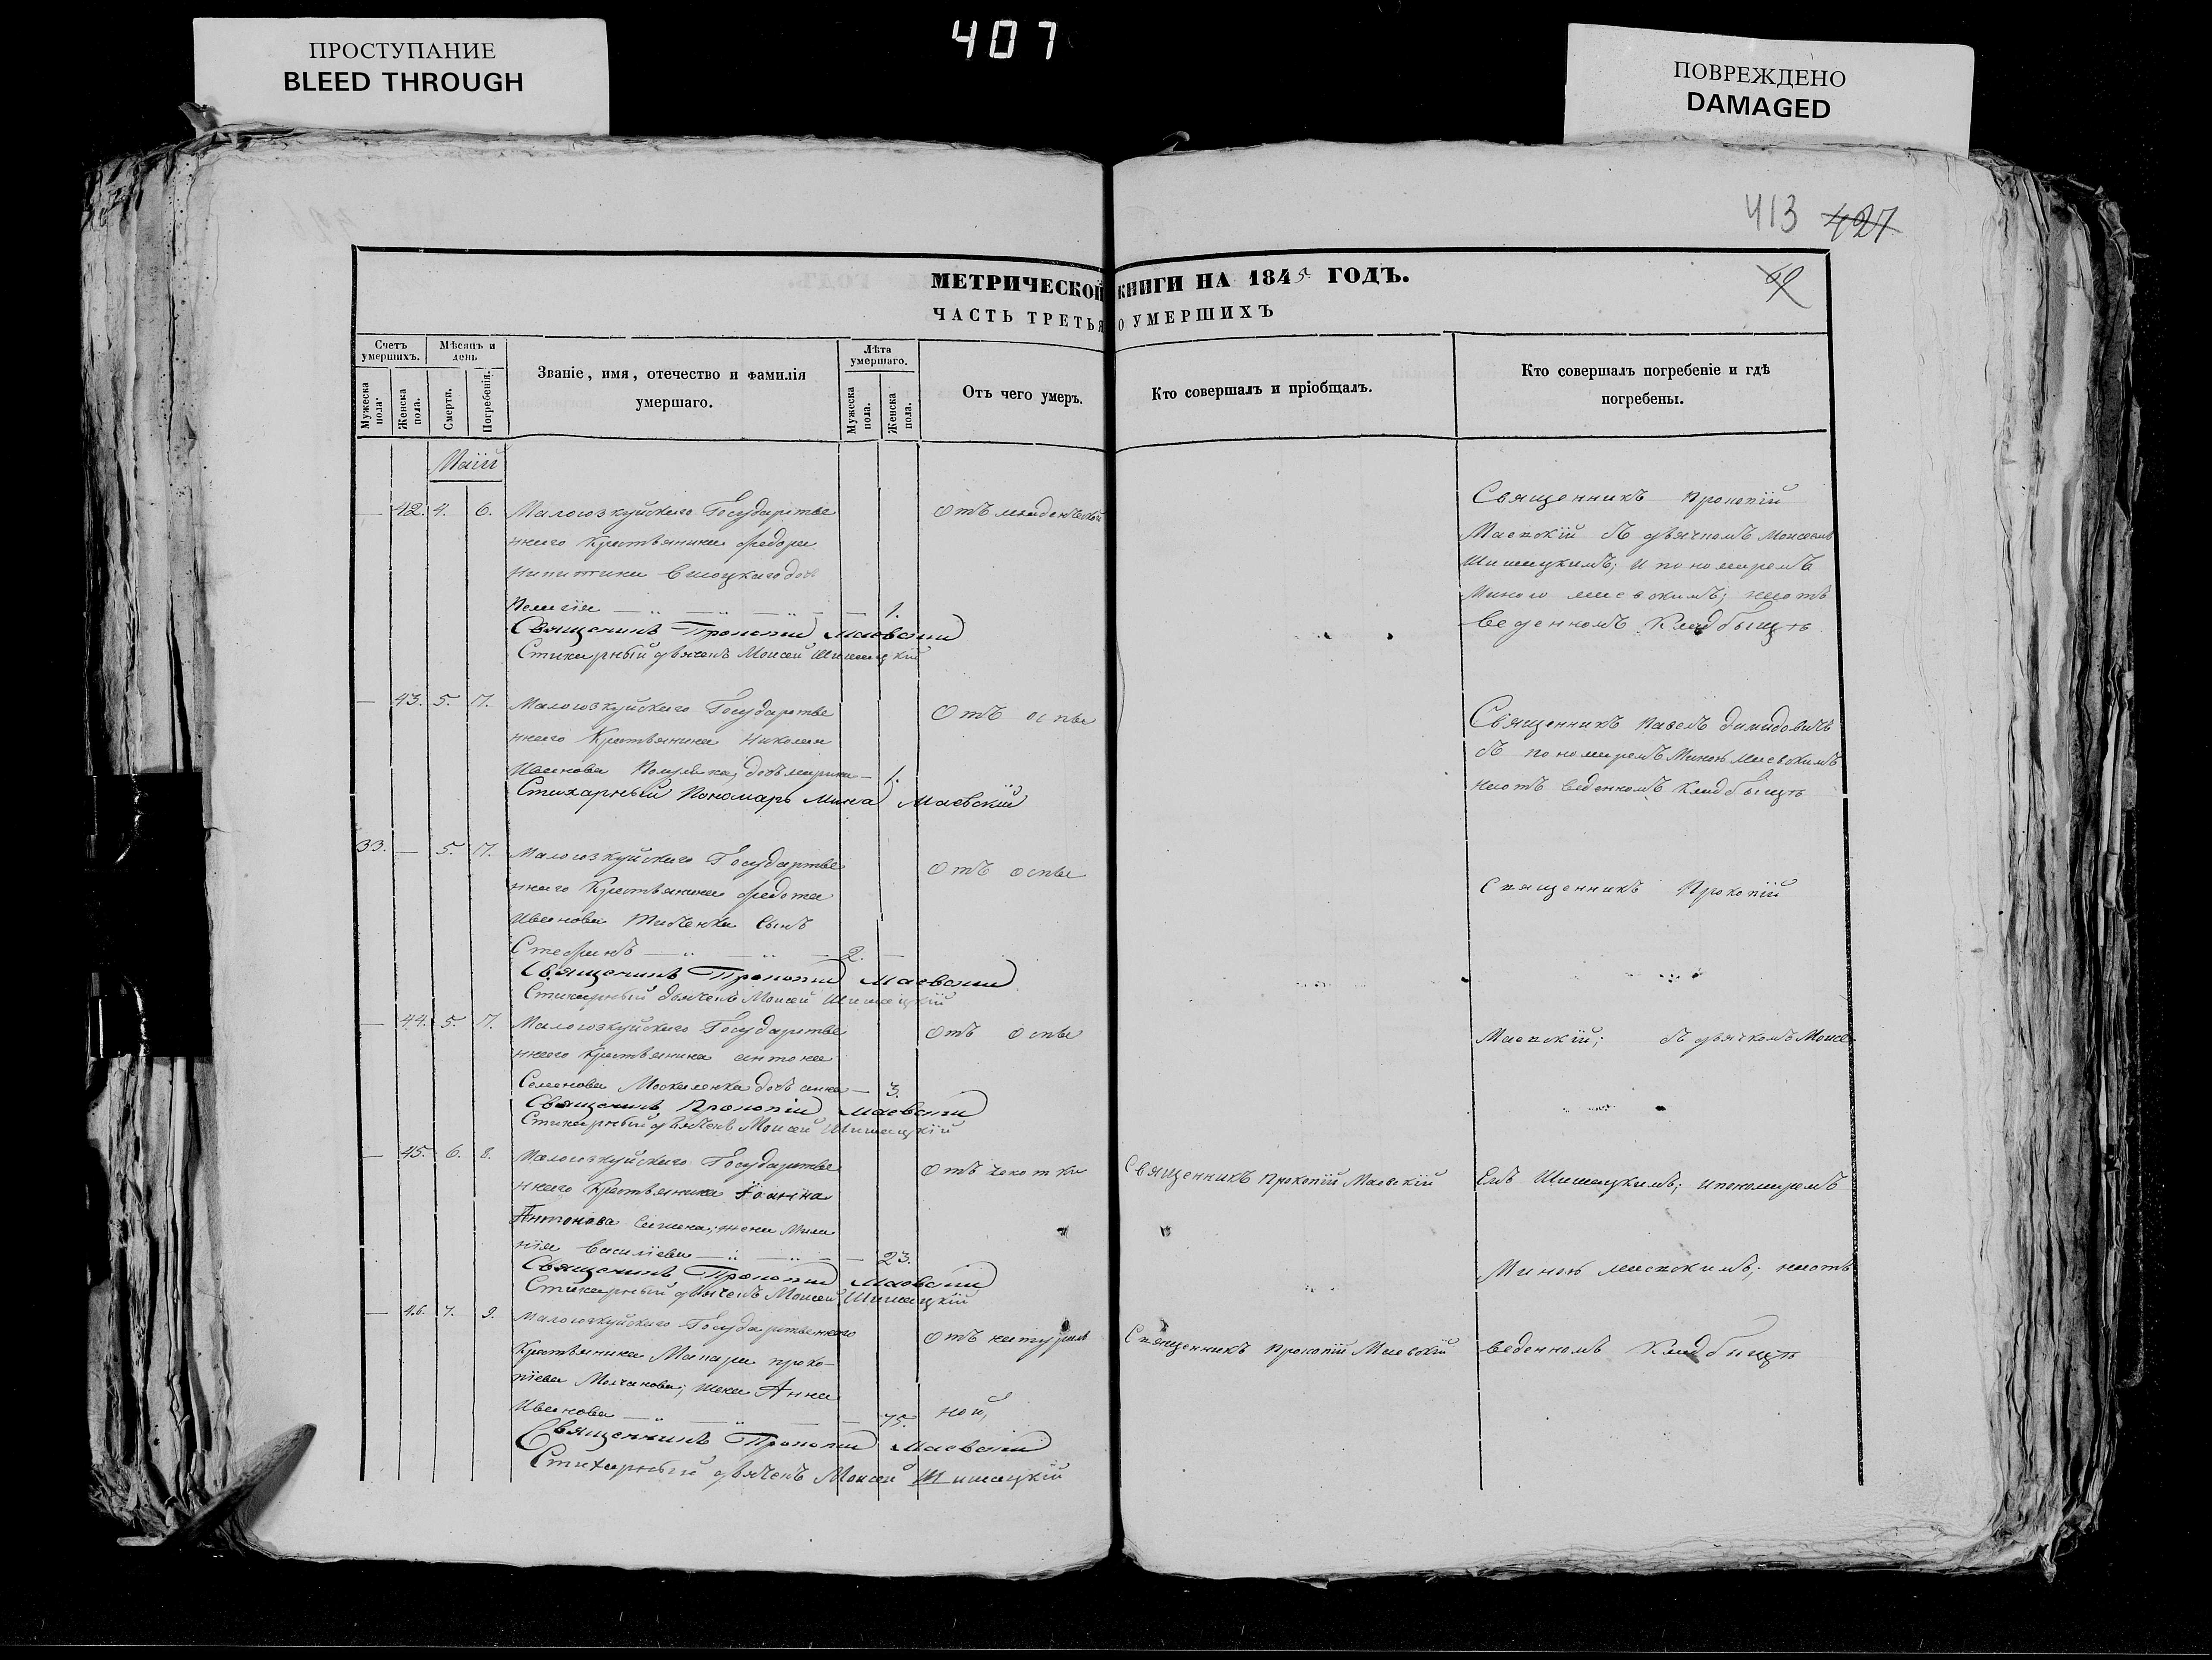 ПРОСТУПАНИЕ
BLEED THROUGH
407
ПОВРЕЖДЕНО
DAMAGED
413 427
МЕТРИЧЕСКОЙ КНИГИ НА 1845 ГОДЪ.
ЧАСТЬ ТРЕТЬЯ О УМЕРШИХЪ
Счетъ умершихъ.
Мужеска пола.
Женска пола.
Мѣсяцъ и день
Смерти.
Погребенія.
Званіе, имя, отечество и фамилія
умершаго.
Лѣта умершаго.
Мужеска пола.
Женска пола.
Отъ чего умеръ.
Кто совершалъ и пріобщалъ.
Кто совершалъ погребеніе и гдѣ
погребены.
Маій
— 42. 4. 6. Государстве
ннаго Крестьянина Федора
Никитина
Пелагія — 1.
Священникъ Прокопій Маевскій
Стихарный дьячекъ Моисей Шишацкій
Священникъ Прокопій
Маевскій съ дьячкомъ Моисеемъ
Шишацкимъ; и пономаремъ
Миною Маевскимъ; на отъ
веденномъ Кладбыщѣ
— 43. 5. 7. Государстве
ннаго Крестьянина Николая
Иванова дочъ Марина — 1.
Стихарный Пономарь Мина Маевскій
Отъ оспы
Священникъ Павелъ Дамидовичъ
съ пономаремъ Миною Маевскимъ
на отъ веденномъ Кладбыщѣ
33. — 5. 7. Государстве
ннаго Крестьянина Федота
Иванова сынъ
Стефанъ — 2. —
Священникъ Прокопій Маевскій
Стихарный дьячекъ Моисей Шишацкій
Отъ оспы
Священникъ Прокопій
— 44. 5. 7. Государстве
ннаго крестьянина Антона
Семенова Москаленка дочъ Анна — 3.
Священникъ Прокопій Маевскій
Стихарный дьячекъ Моисей Шишацкій
Отъ оспы
Маевскій; съ дьячкомъ Моисе
— 45. 6. 8. Государстве
ннаго Крестьянина Іоанна
Антонова жена Мела
нія Василіева — 23.
Священникъ Прокопій Маевскій
Стихарный дьячекъ Моисей Шишацкій
Отъ чахотки
Священникъ Прокопій Маевскій
Емъ Шишацкимъ; и пономаремъ
Миною Маевскимъ; на отъ
— 46. 7. 9. Государственнаго
Крестьянина Макара Проко-
піева Молчанова; жена Анна
Иванова — 75.
Священникъ Прокопій Маевскій
Стихарный дьячекъ Моисей Шишацкій
Отъ натураль
ной,
Священникъ Прокопій Маевскій
веденномъ Кладбыщѣ